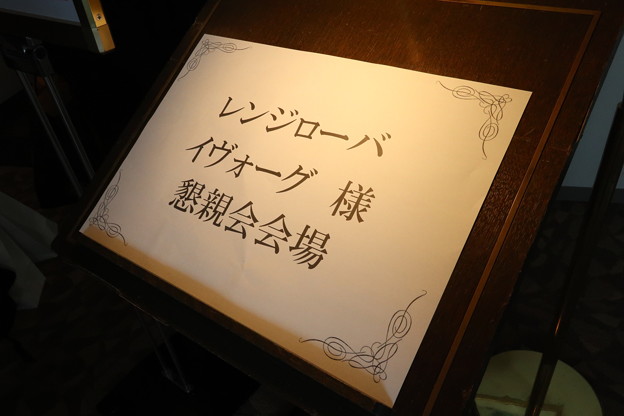 レンジローバ
イヴォーグ 様
懇親会会場